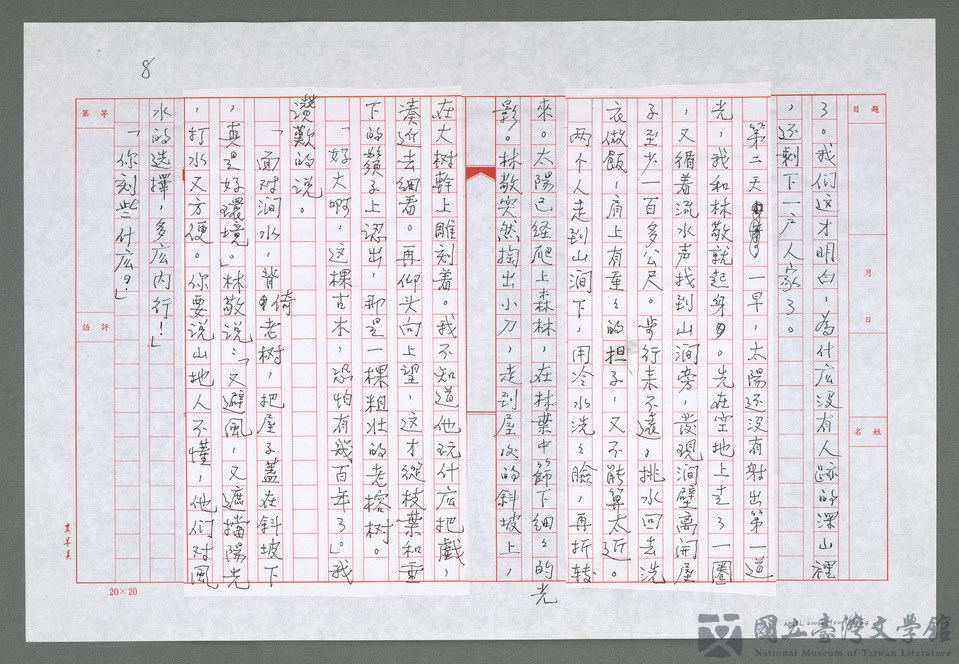 8
題目
月
日
姓名
了。我们这才明白，为什広没有人跡的深山裡
，还剩下一户人家了。
第二天一早，太陽还没有射出第一道
光，我和林敬就起身。先在空地上走了一圈
，又循着流水声找到山涧旁，发現涧壁离开屋
子至少一百多公尺。步行来不遠，挑水回去洗
衣做飯，肩上有重々的担子，又不能算太近。
两个人走到山涧下，用冷水洗々臉，再折转
來。太陽已经爬上森林，在林葉中篩下细々的光
影。林敬突然掏出小刀，走到屋后的斜坡上，
在大树幹上雕刻着。我不知道他玩什広把戲，
凑近去细看。再仰头向上望，这才從枝葉和
下的鬚子上认出，那是一棵粗壮的老榕树。
「好大啊，这棵古木，恐怕有幾百年了。」我
讚歎的说。
「面对涧水，背倚老树，把屋子蓋在斜坡下
，真是好環境。」林敬说：「又避風，又遮擋陽光
，打水又方便。你要说山地人不懂，他们对風
水的选擇，多広内行！」
「你刻些什広？」
等第
評語
20×20
國立臺灣文學館
National Museum of Taiwan Literature